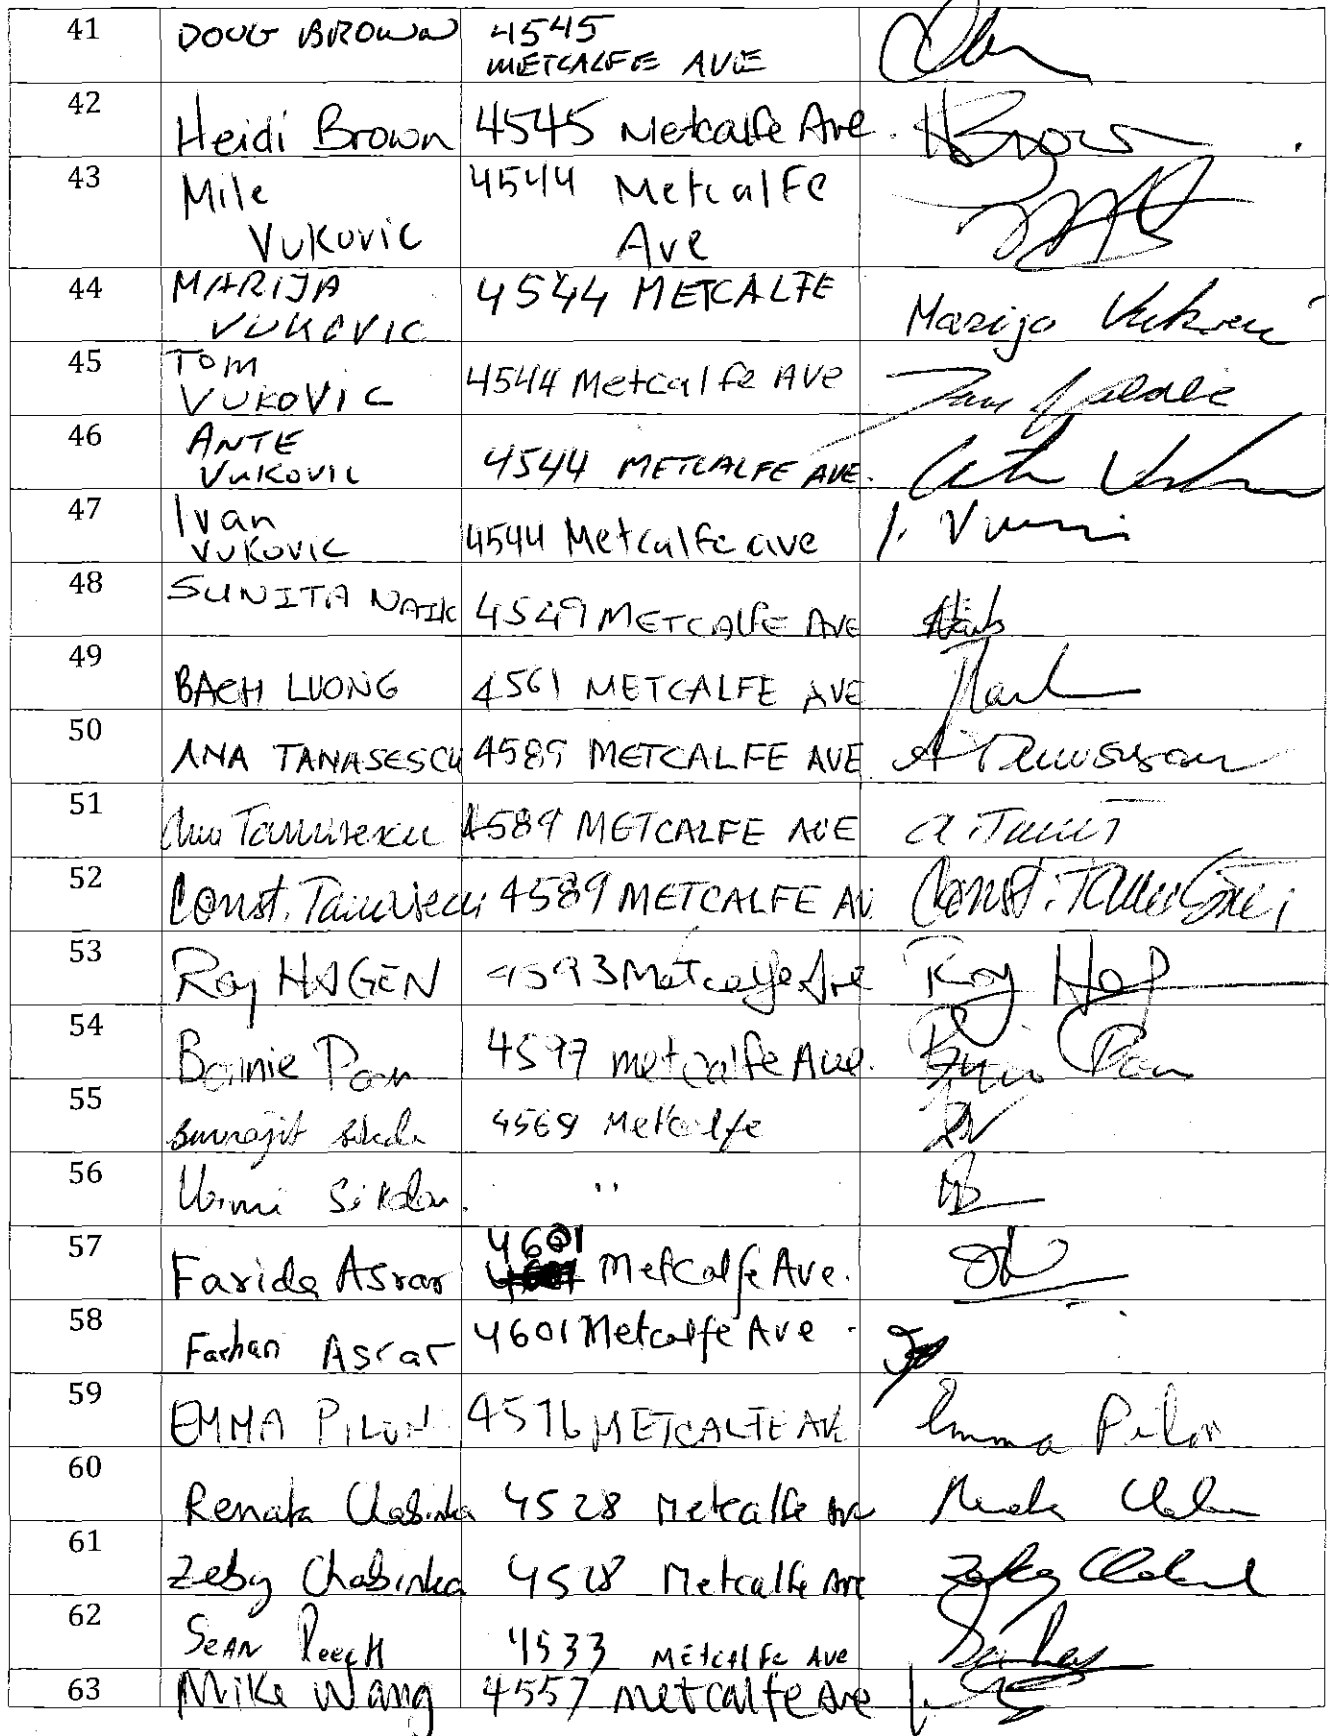 41 DOUG BROWN 4545
METCALFE AVE
42 Heidi Brown 4545 Metcalfe Ave. HBrown
43 Mile 4544 Metcalfe
Vukovic Ave
44 MARIJA 4544 METCALFE
VUKOVIC Marija Vukovic
45 TOM 4544 Metcalfe Ave
VUKOVIC
46 ANTE
VUKOVIC 4544 METCALFE AVE.
47 Ivan
VUKOVIC 4544 Metcalfe ave
48 SUNITA NAIK 4549 METCALFE AVE
49 BACH LUONG 4561 METCALFE AVE
50 ANA TANASESCU 4589 METCALFE AVE
51 4589 METCALFE AVE
52 Const. 4589 METCALFE AV Const.
53 Roy HAGEN 4593 Metcalfe Ave Roy
54 Bonnie Pan 4597 metcalfe Ave.
55 4569 Metcalfe
56 Sikdar. "
57 4601
Farida Asrar Metcalfe Ave.
58 Farhan Asrar 4601 Metcalfe Ave
59 EMMA PILON 4576 METCALFE AV Emma Pilon
60 Renata Chabinka 4528 Metcalfe Ave
61 Zeby Chabinka 4528 Metcalfe Ave
62 SEAN 4533 Metcalfe Ave
63 Mike Wang 4557 metcalfe Ave